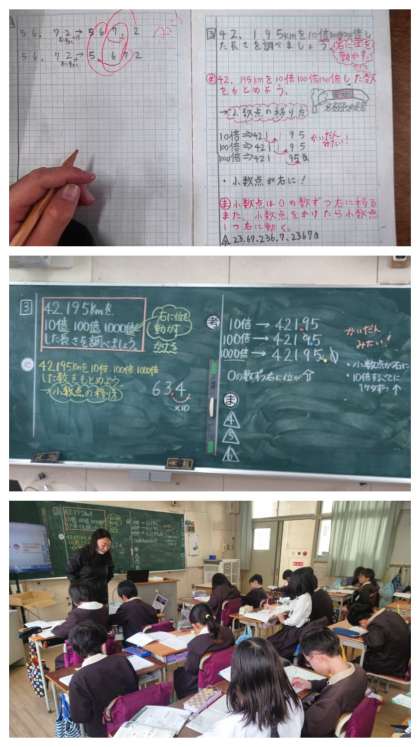 56.72→567.2
56.72→5.672
42.195kmを10倍100倍1000倍し
た長さを調べましょう。
42.195kmを10倍100倍1000倍した数
をもとめよう。
→小数点の移り方
10倍⇒421.95
100倍⇒4219.5
1000倍⇒42195.
かいだん
みたい!
・小数点が右に!
小数点は0の数ずつ右に移る
また、
1つ右に動く。
23.67.236.7.2367
3
42.195kmを
10倍 100倍 1000倍
した長さを調べましょう
右に位を
動かす
42.195kmを10倍 100倍 1000倍
した数をもとめよう
→小数点の移り方
63.4
×10
考
10倍 → 421.95
100倍 → 4219.5
1000倍 → 42195.
0の数ずつ右に位が↑
かいだん
みたい!
・小数点が右に
・10倍するごとに
1ケタずつ↑
ま